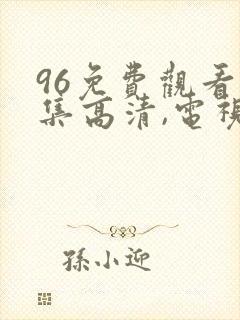 96免費觀看
集高清,電視
孫小迎